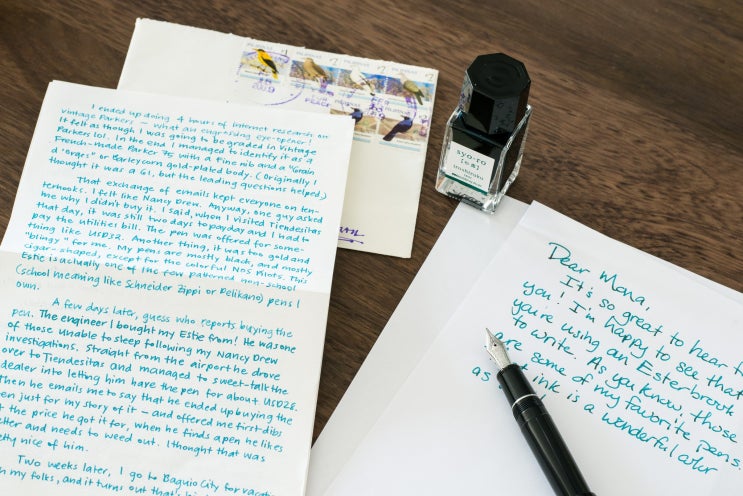 I ended up doing 4 hours of internet research on
vintage Parkers — what an engrossing eye-opener!
It felt as though I was going to be graded in Vintage
Parkers lol. In the end I managed to identify it as a
French-made Parker 75 with a fine nib and a "Grain
d'orges" or Barleycorn gold-plated body. (Originally I
thought it was a G1, but the leading questions helped.)
That exchange of emails kept everyone on ten-
terhooks. I felt like Nancy Drew. Anyway, one guy asked
me why I didn't buy it. I said, when I visited Tiendesitas
that day, it was still two days to payday and I had to
pay the utilities bill. The pen was offered for some-
thing like USD32. Another thing, it was too gold and
"blingy" for me. My pens are mostly black, and mostly
cigar-shaped, except for the colorful NOS Pilots. This
Estie is actually one of the few patterned non-school
(school meaning like Schneider Zippi or Pelikano) pens I
own.
A few days later, guess who reports buying the
pen. The engineer I bought my Estie from! He was one
of those unable to sleep following my Nancy Drew
investigations. Straight from the airport he drove
over to Tiendesitas and managed to sweet-talk the
dealer into letting him have the pen for about USD28.
Then he emails me to say that he ended up buying the
pen just for my story of it — and offered me first dibs
at the price he got it for, when he finds a pen he likes
better and needs to weed out. I thought that was
pretty nice of him.
Two weeks later, I go to Baguio City for
with my folks, and it turns out that's
PILIPINAS
syo-ro
iroshizuku
Dear Mona,
It's so great to hear
you! I'm happy to see that
you're using an Esterbrook
to write. As you know, those
are some of my favorite pens,
as ink is a wonderful color